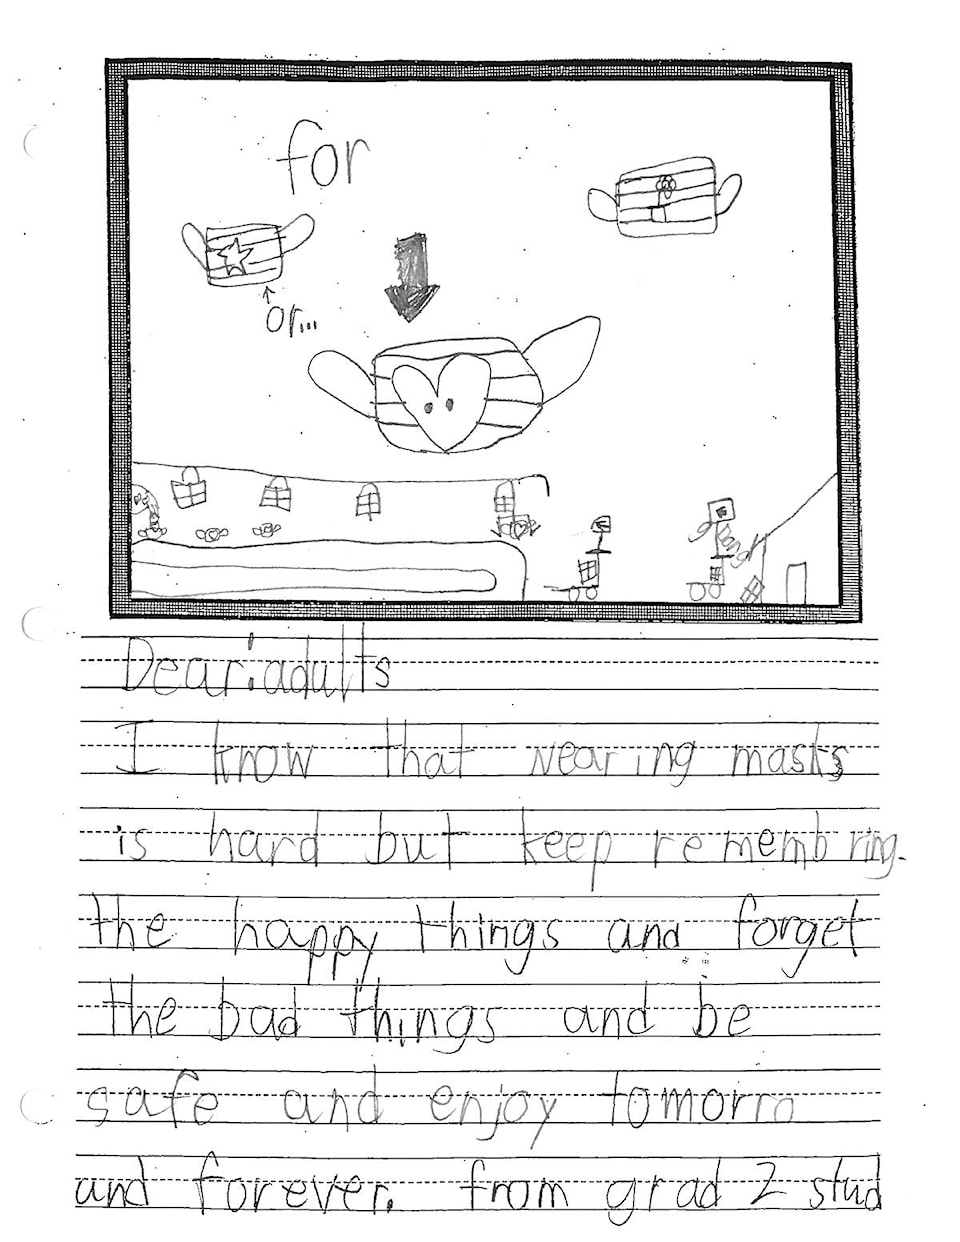 for
or...
Dear: adults
I know that wearing masks
is hard but keep remembring.
the happy things and forget
the bad things and be
safe and enjoy tomorro
and forever. from grad 2 stud